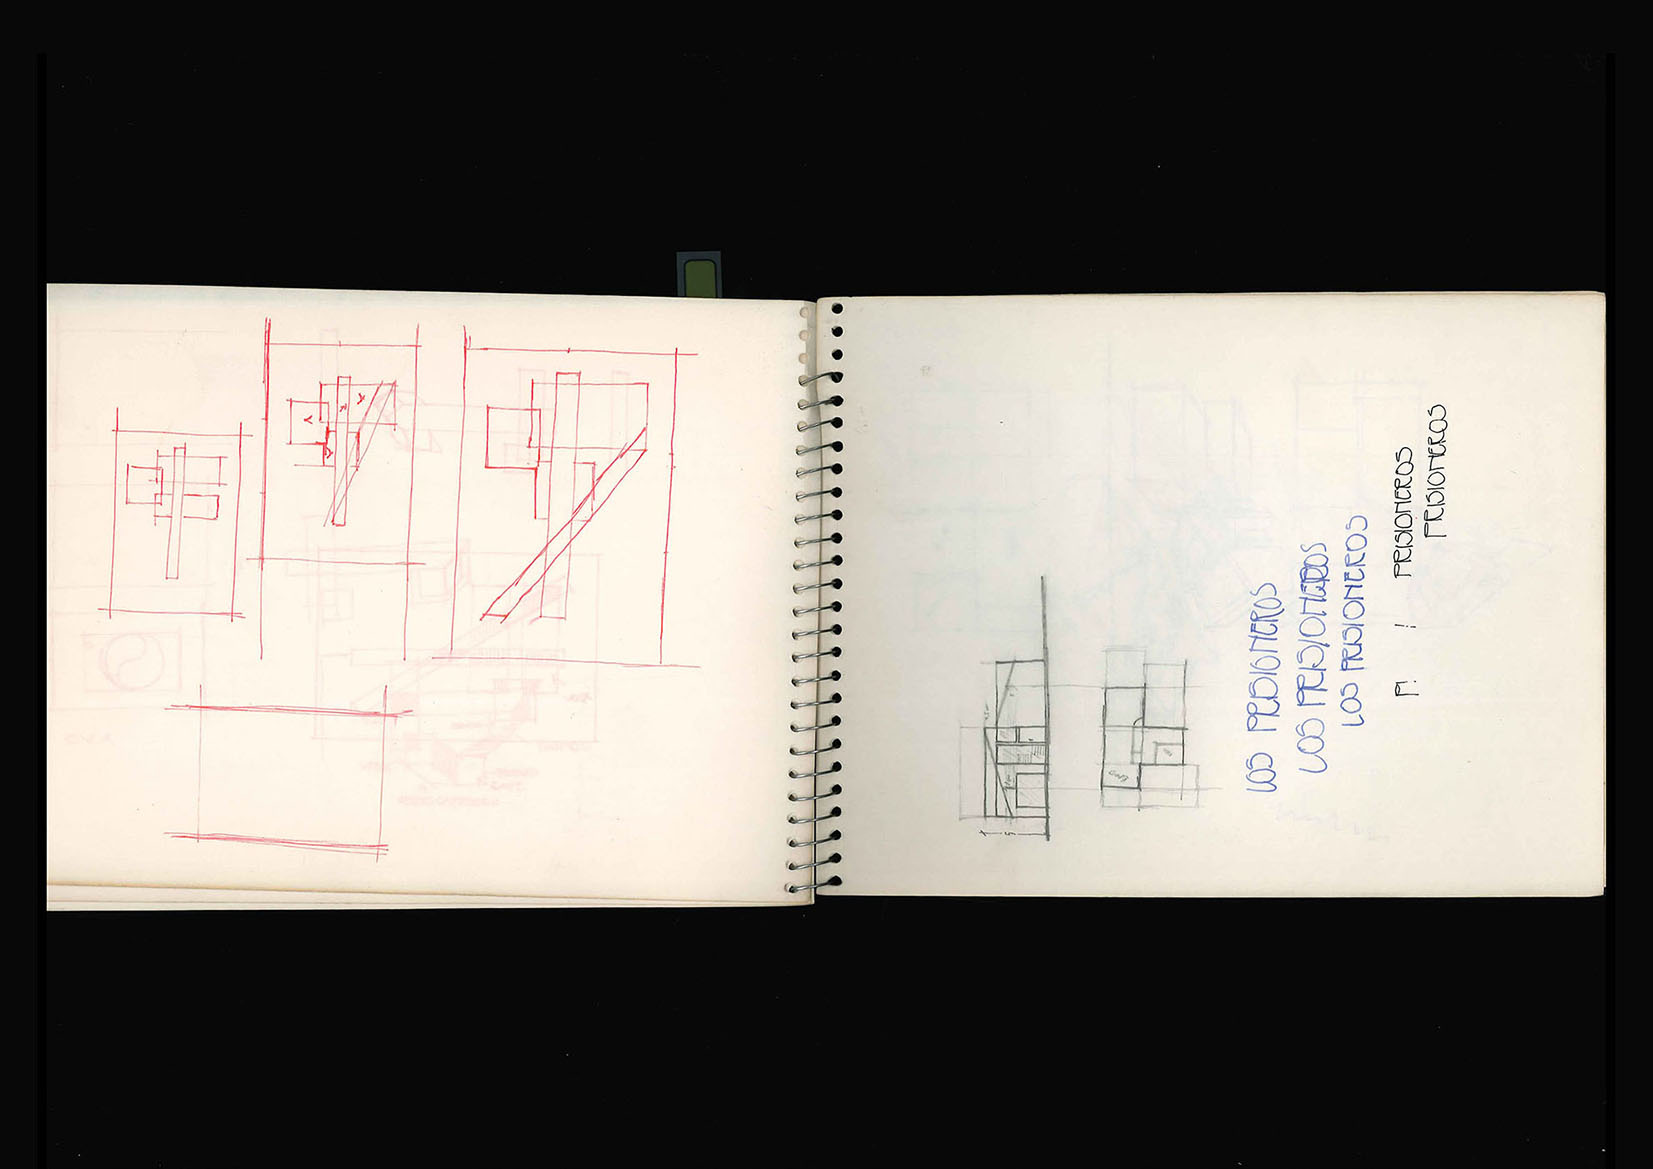 LOS PRISIONEROS
LOS PRISIONEROS
LOS PRISIONEROS
P! ! PRISIONEROS
PRISIONEROS